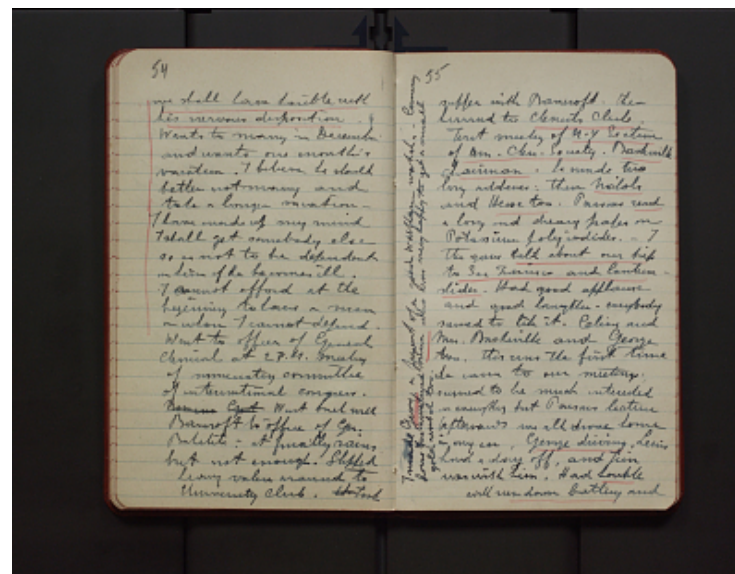 54
we shall have trouble with
his nervous disposition. I
Wants to marry in December
and wants one month's
vacation. I believe he should
better not marry and
take a longer vacation -
I have made up my mind
I shall get somebody else
so as not to be dependent
on him if he becomes ill.
I cannot afford at the
beginning to have a man
on whom I cannot depend.
Went to office of General
Chemical at 2 P.M. meeting
of nominating committee
of international congress.
Went back with
Bancroft to office of Gen.
Bakelite - it finally rains
but not enough. Shipped
heavy valise around to
University Club. Took
55
supper with Bancroft. then
hurried to Chemists Club.
First meeting of N.Y. Section
of Am. Chem. Society. Baskerville
Chairman. he made two
long addresses: then Nichols
and Hesse too. Parsons read
a long and dreary paper on
Potassium polyiodides. - I
then gave talk about our trip
to San Francisco and lantern
slides. Had good applause
and good laughter - everybody
seemed to like it. Celine and
Mrs. Baskerville and George
too. this was the first time
he came to our meetings.
seemed to be much interested
in everything but Parsons lecture
afterwards we all drove home
in my car, George driving, Lewis
had a day off, and
was with him. Had trouble
with run down battery and
I made George a present of a gold watch
gold watch too.